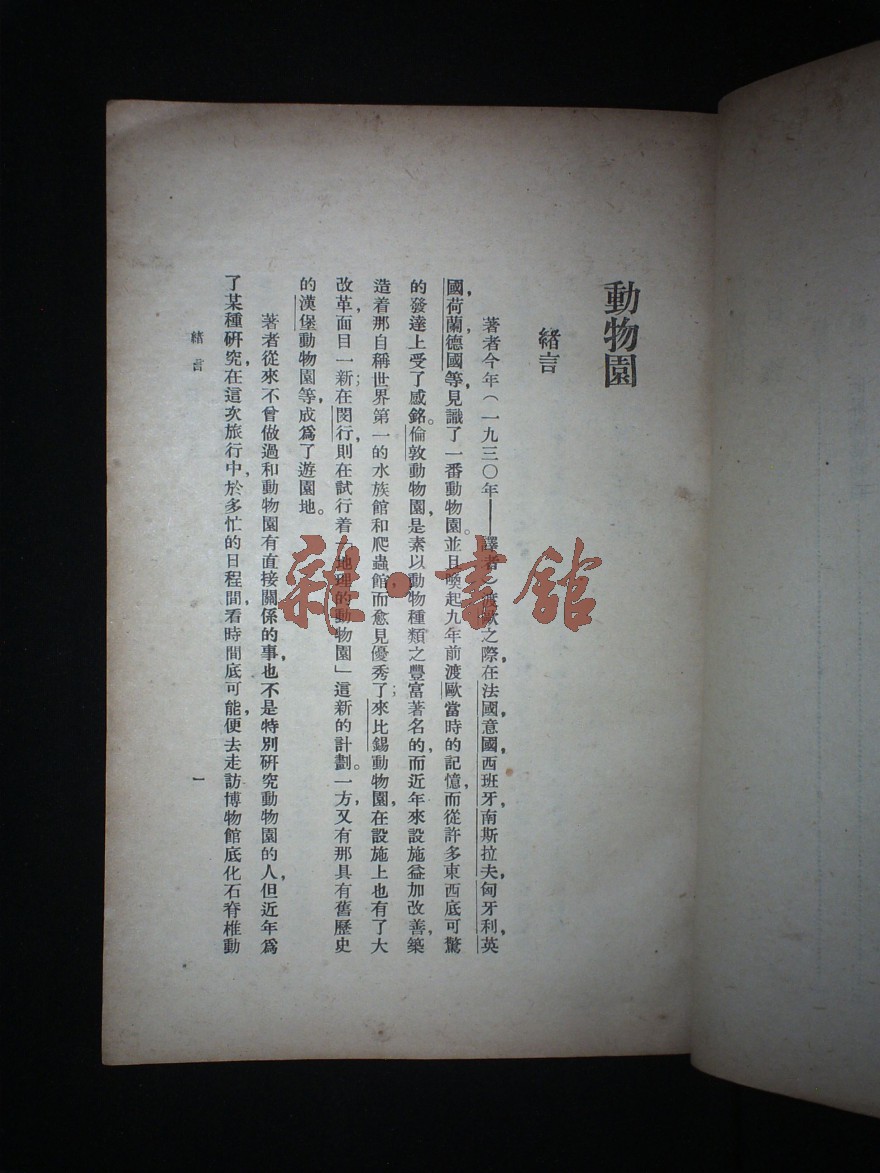 動物園
緒言
著者今年(一九三〇年——譯者)渡歐之際,在法國,意國,西班牙,南斯拉夫,匈牙利,英
國,荷蘭,德國等,見識了一番動物園。並且喚起九年前渡歐當時的記憶,而從許多東西底可驚
的發達上受了感銘。倫敦動物園,是素以動物種類之豐富著名的,而近年來設施益加改善,築
造着那自稱世界第一的水族館和爬蟲館,而愈見優秀了;來比錫動物園,在設施上也有了大
改革,面目一新;在閔行,則在試行着「地理的動物園」這新的計劃。一方,又有那具有舊歷史
的漢堡動物園等,成爲了遊園地。
著者從來不曾做過和動物園有直接關係的事,也不是特別研究動物園的人,但近年爲
了某種研究,在這次旅行中,於多忙的日程間,看時間底可能,便去走訪博物館底化石脊椎動
緒言
一
雜·書館